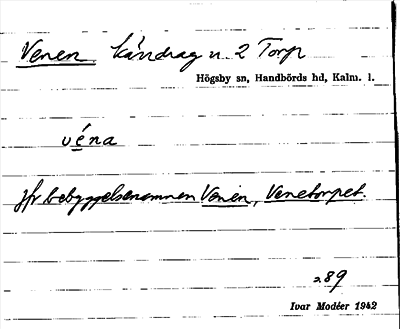 Venen kärrdrag n. 2 Torp
Högsby sn, Handbörds hd, Kalm. l.
véna
jfr bebyggelsenamnen Venen, Venetorpet.
s. 89
Ivar Modéer 1942